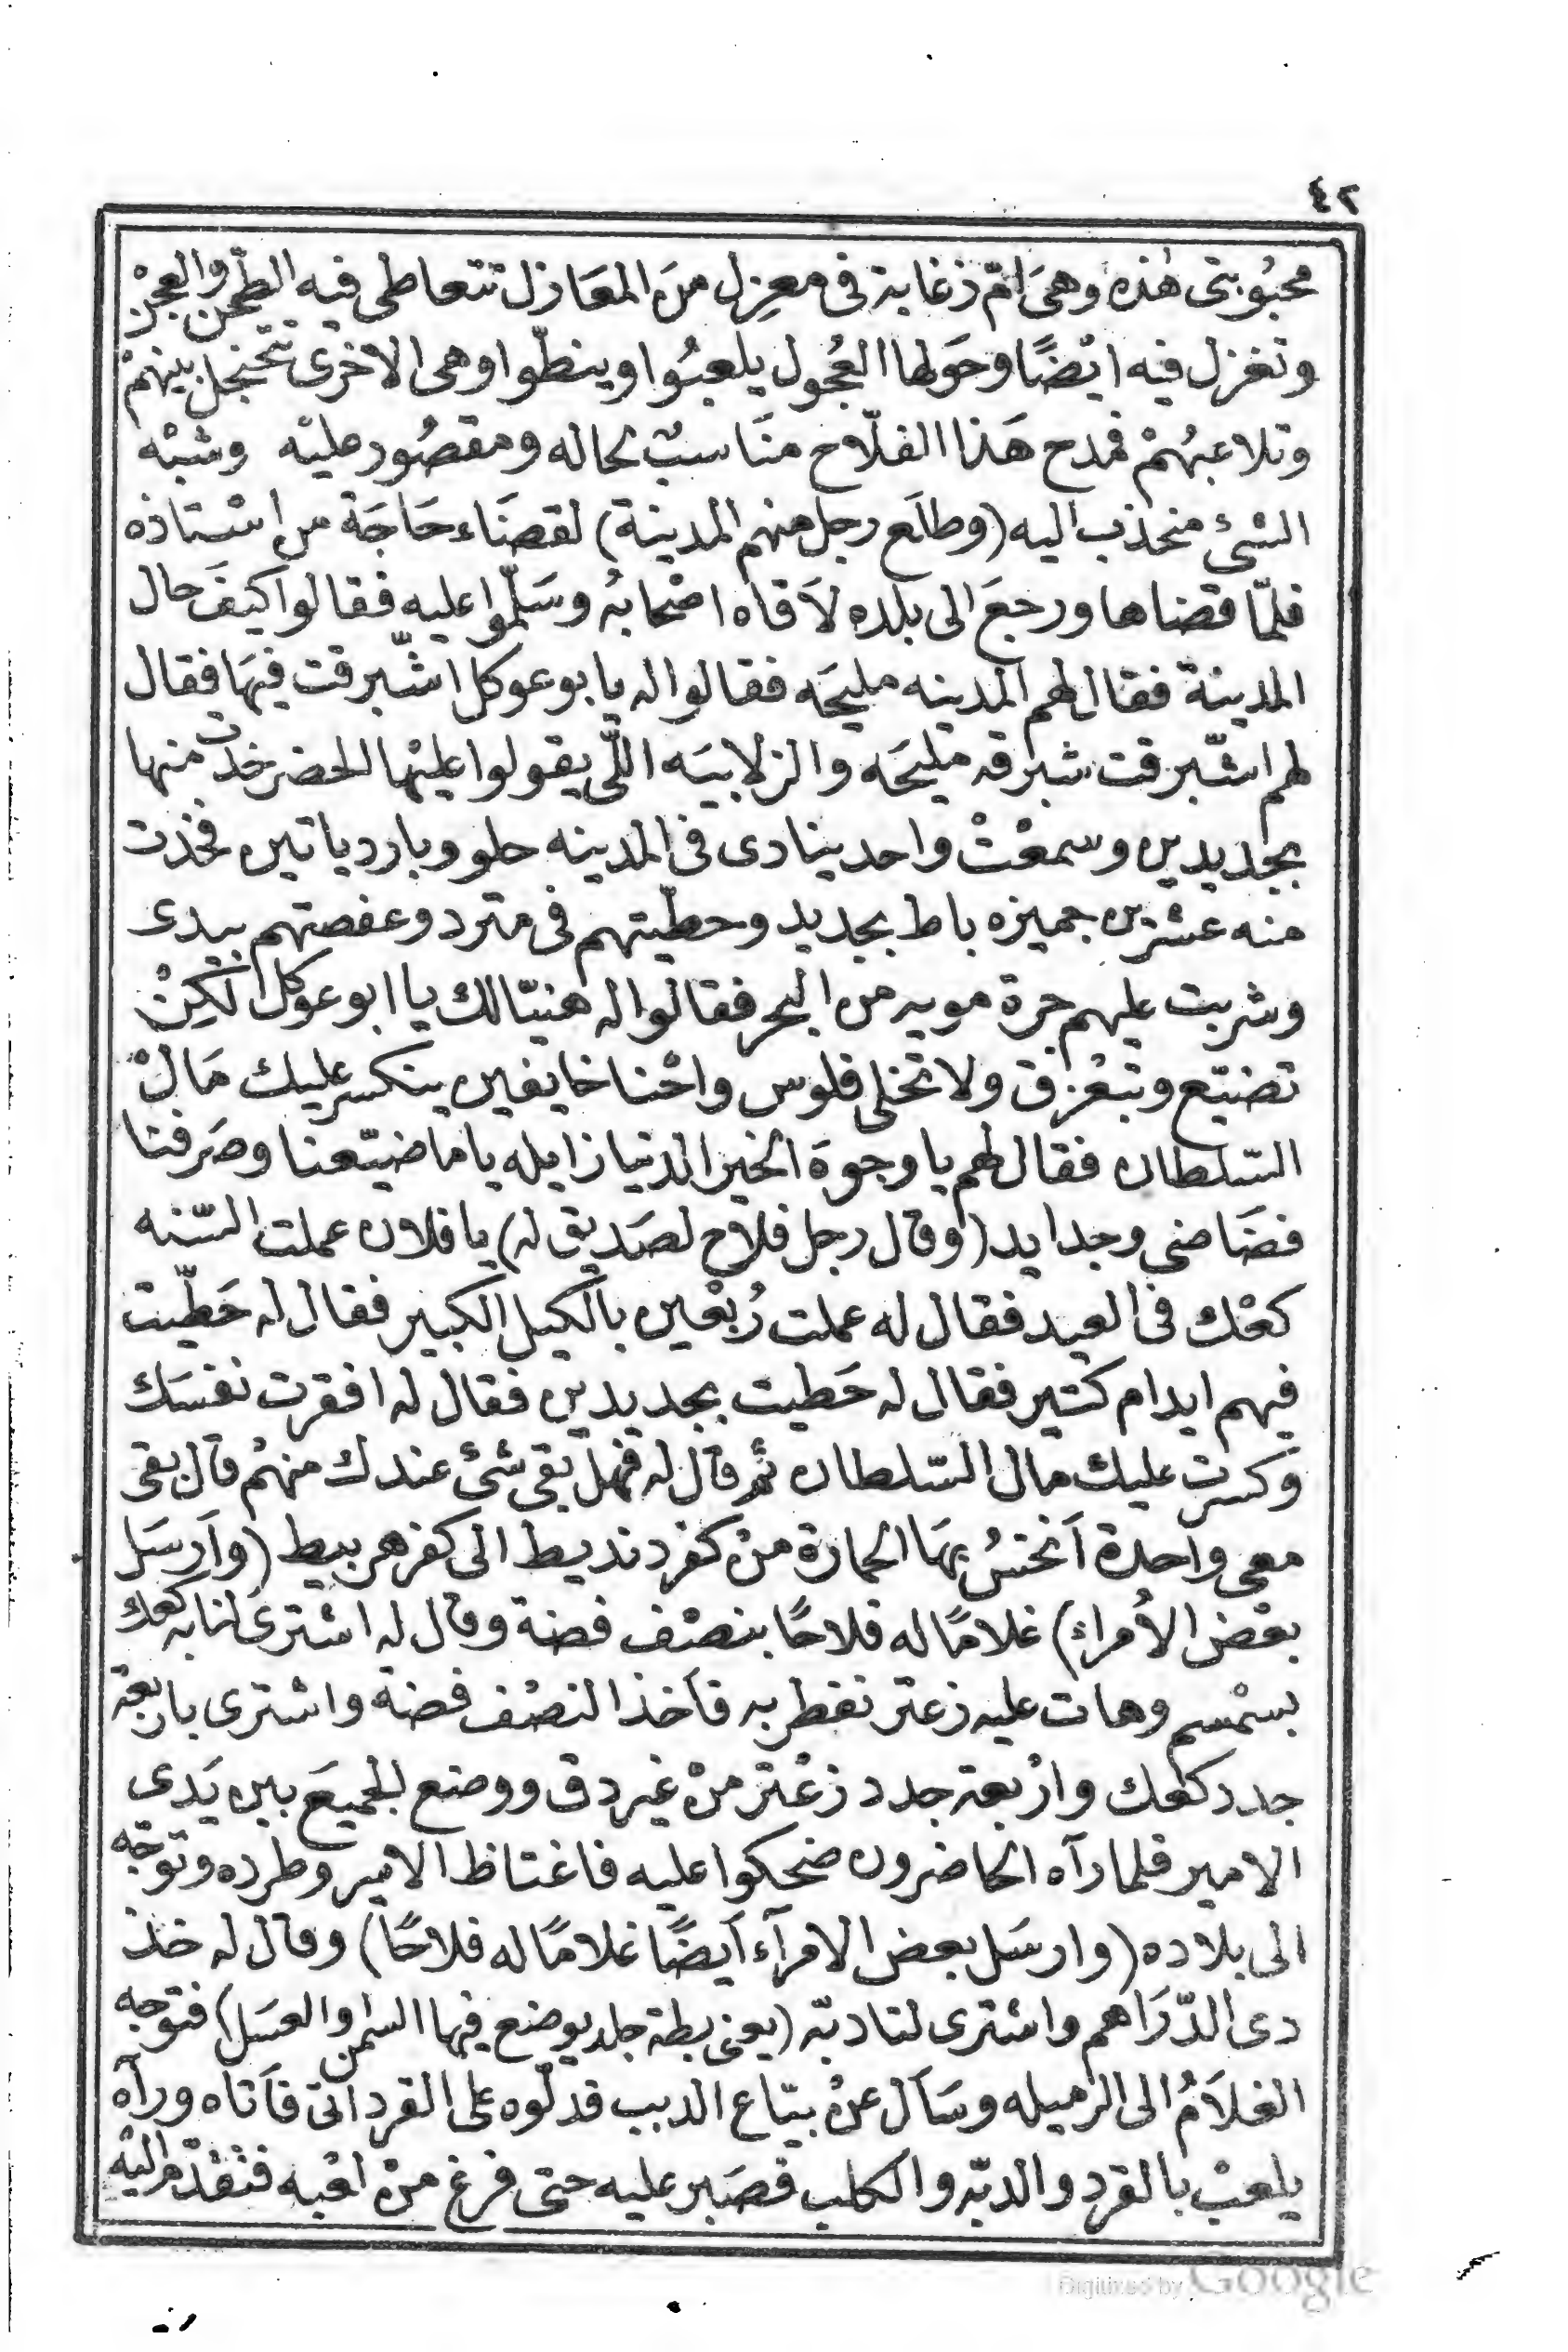 ٤٢
محبُوبتى هٰذه وهىَ امّ زغابة فى معزِل منَ المعَازل تتعاطى فيه الطّحن والعجِنْ
وتغزل فيه ايْضًا وحَولها العُجول يلعبُوا وينطّوا وهى الاخرٰى تتحنجل بينهمْ
وتلاعبهُمْ فمدح هَذا الفلّاح منَاسبٌ لحاله ومقصُور عليْه وشبْه
الشئ منجذب اليه (وطلَع رجل منهم المدينة) لقضَاء حَاجَة من اسْتاذه
فلمّا قضاها ورجعَ الى بلده لاَقاه اصْحابهُ وسَلّموا عليه فقالوا كيفَ حال
المدينة فقال لهم المدينه مليحَه فقالوا له يابوعوكل اشّبرقت فيهَا فقال
لهم اشّبرقت شبرقه مليحَه والزلابيَه اللّى يقولوا عليْها الحضر خدت منها
بجديدين وسمعْتْ واحد ينادى فى المدينه حلو وبارد ياتين فخدت
منه عشرين جميزه باط بجديد وحطّيتهم فى مترد وعفصتهم بيدى
وشربت عليهم جرة مويه من البحر فقالوا له هنيّا لك يا ابوعوكل لكِنْ
تضيّع وتبعْزق ولا تخلى فلوس واحْنا خايفين ينكسر عليك مَالْ
السّلطان فقال لهم يا وجوهَ الخير الدنيا زايله ياما ضيّعنا وصَرفنا
فضَاضى وجدايد (وقال رجل فلاح لصَديق له) يا فلان عملت السّنه
كعْك فى العيد فقال له عملت رُبعْين بالكيل الكبير فقال له حَطّيت
فيهم ايدام كتير فقال له حَطيت بجديدين فقال له افقرت نفسَك
وَكسرت عليك مال السّلطان ثم قال له فهل بقى شئ عندك منهُم قال بقى
معى واحدة اَنخسُ بهَا الحمارة منْ كفر دنديط الى كفر هربيط (وَاَرسَل
بعْض الاُمراء) غلامًا له فلاحًا بنصْف فضة وقال له اشترى لنا به كعك
بسمْسم وهات عليه زعتر نفطر به فاَخذ النصْف فضة واشترى باربعة
جدد كعك وارْبعة جدد زعْتر منْ غير دق ووضع الجميعَ بين يَدى
الامير فلما رآه الحاضرون ضحكوا عليه فاغتاظ الامير وطرده وتوجّه
الى بلاده (وارسَل بعض الامرآء اَيضًا غلامًا له فلاحًا) وقال له خذ
دى الدّرَاهم واشترى لنا دبّه (يعنى بطة جلد يوضع فيها السمن والعسَل) فتوجه
الغلاَمُ الى الرميله وسَاَل عنْ بيّاع الدبب فدلّوه على القرداتى فاَتاه ورآه
يلعبْ بالقرد والدبّه والكلب فصَبر عليه حتى فرغ منْ لعْبه فتقدّم اليْه
Digitized by Google